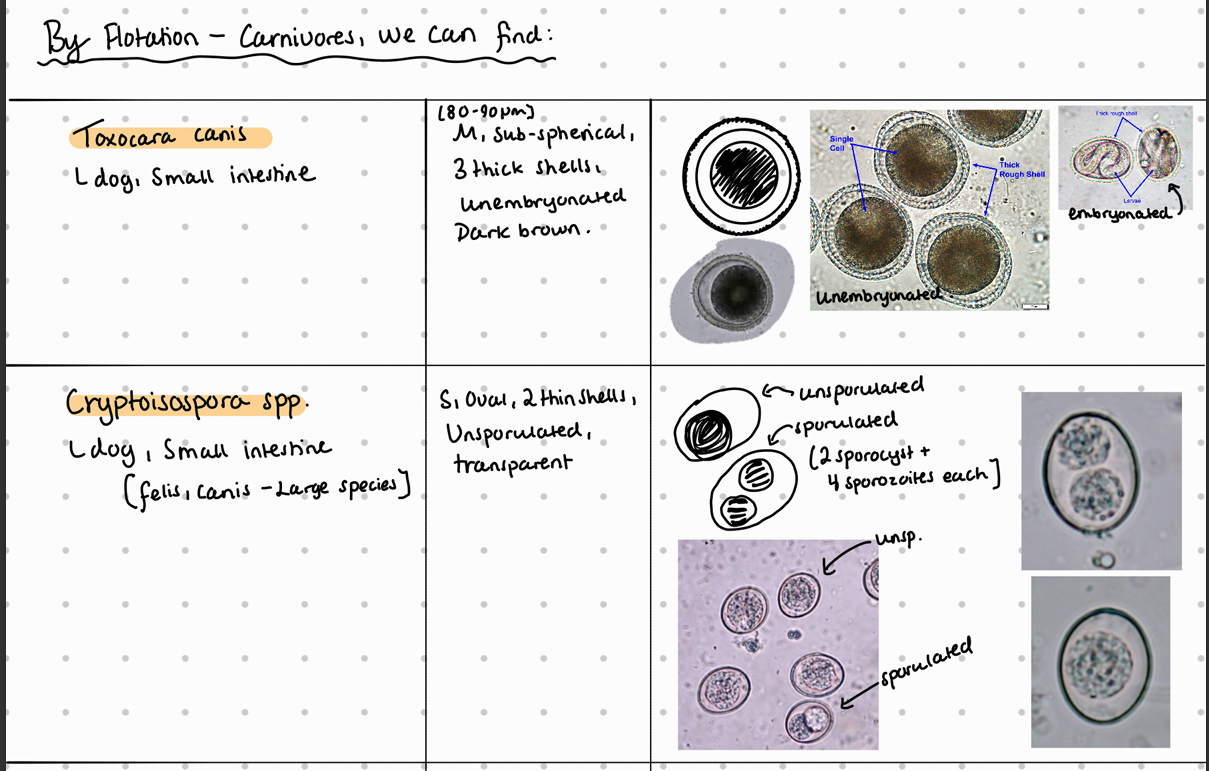 By Flotation - Carnivores, we can find:
Toxocara canis
L dog, small intestine
[80-90µm]
M, sub-spherical,
3 thick shells,
unembryonated
Dark brown.
Single
Cell
Thick
Rough Shell
unembryonated
Thick rough shell
Larvae
embryonated
Cryptoisospora spp.
L dog, small intestine
[felis, canis - Large species]
S, Oval, 2 thin shells,
Unsporulated,
transparent
unsporulated
sporulated
[2 sporocyst +
4 sporozoites each]
unsp.
sporulated